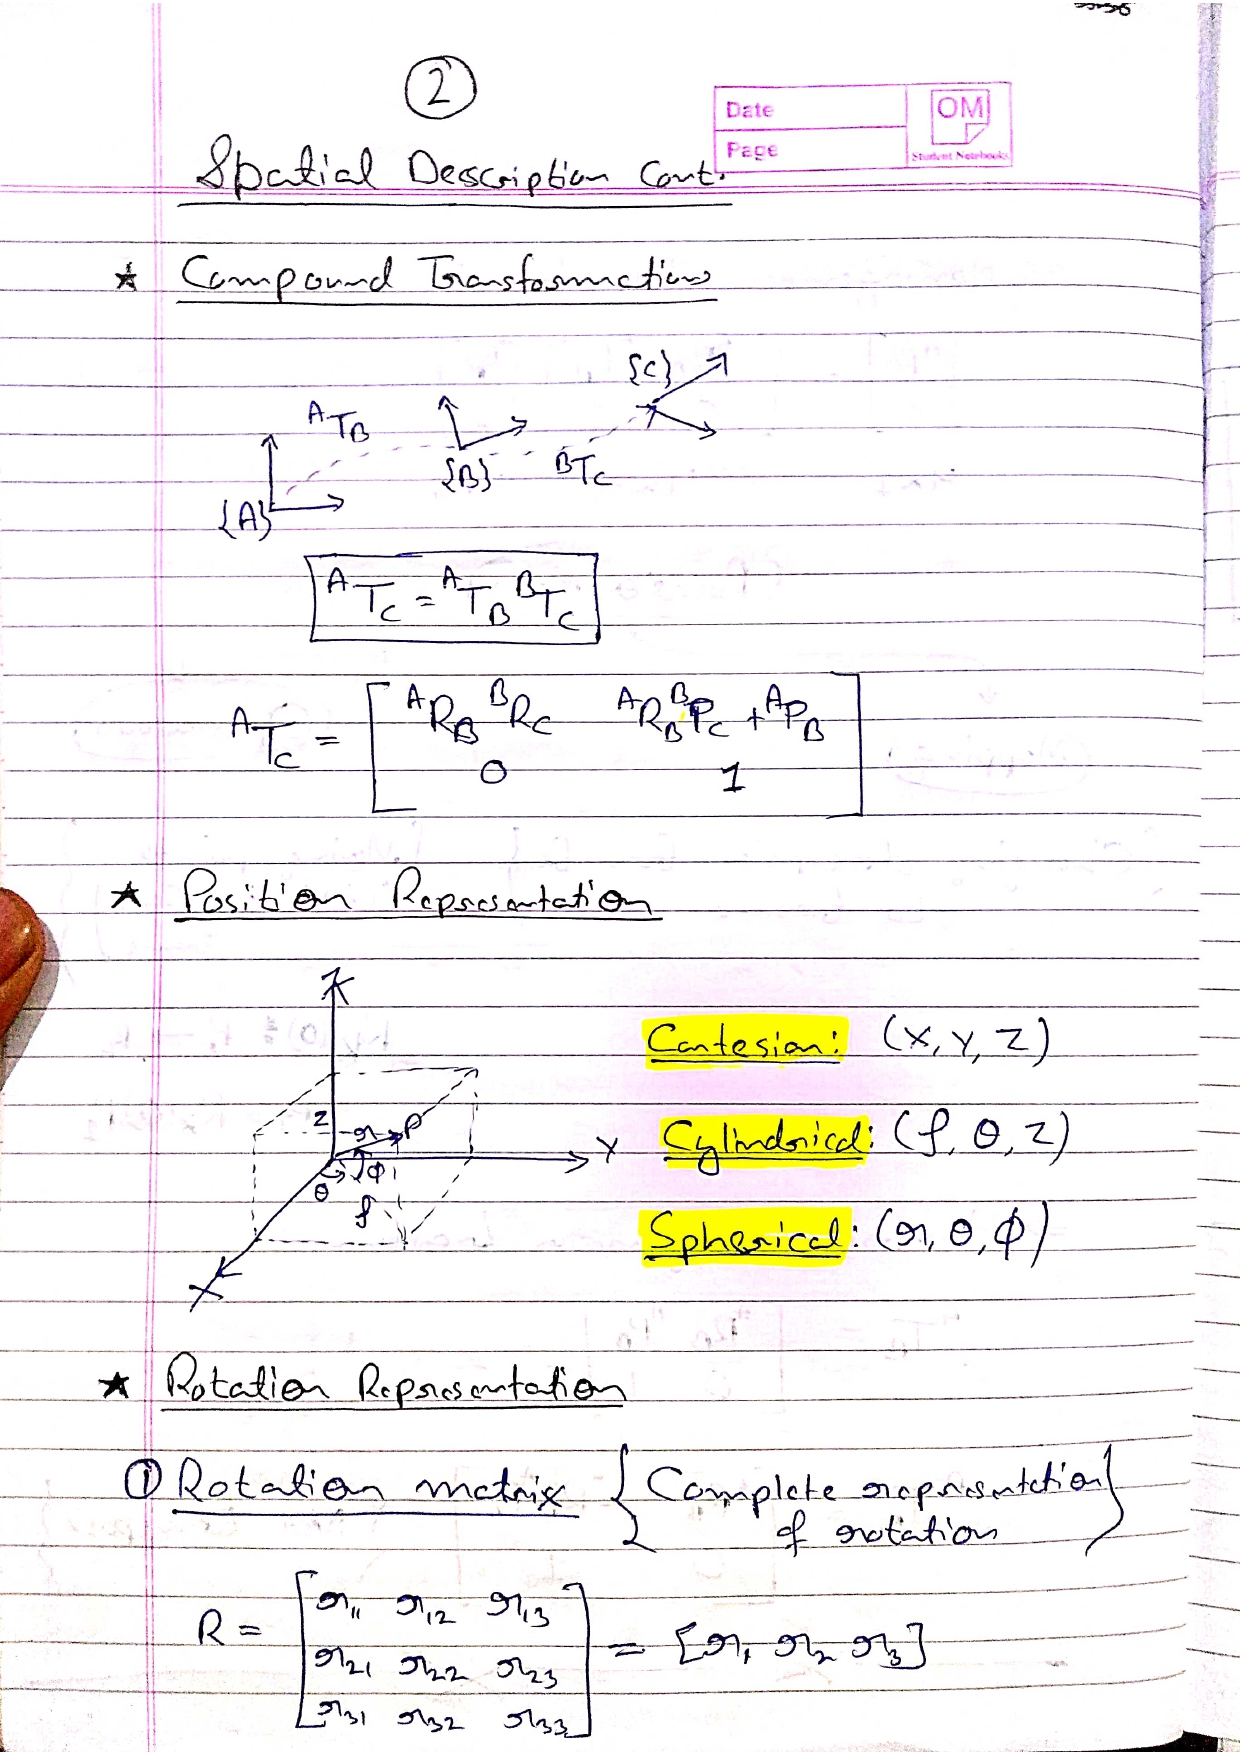 ②
Date
OM
Page
Student Notebooks
Spatial Description Cont.
★ Compound Transformations
{C}
ᴬT_B
{B}
ᴮT_C
{A}
ᴬT_C = ᴬT_B ᴮT_C
ᴬT_C = [ ᴬR_B ᴮR_C ᴬR_B ᴮP_C + ᴬP_B
0 1 ]
★ Position Representation
Z
Cartesian: (X, Y, Z)
Z r P
Y
Cylindrical: (ρ, θ, Z)
θ φ
ρ
Spherical: (r, θ, φ)
X
★ Rotation Representation
① Rotation matrix { Complete representation
of rotation }
R = [ r₁₁ r₁₂ r₁₃
r₂₁ r₂₂ r₂₃
r₃₁ r₃₂ r₃₃ ] = [r₁ r₂ r₃]